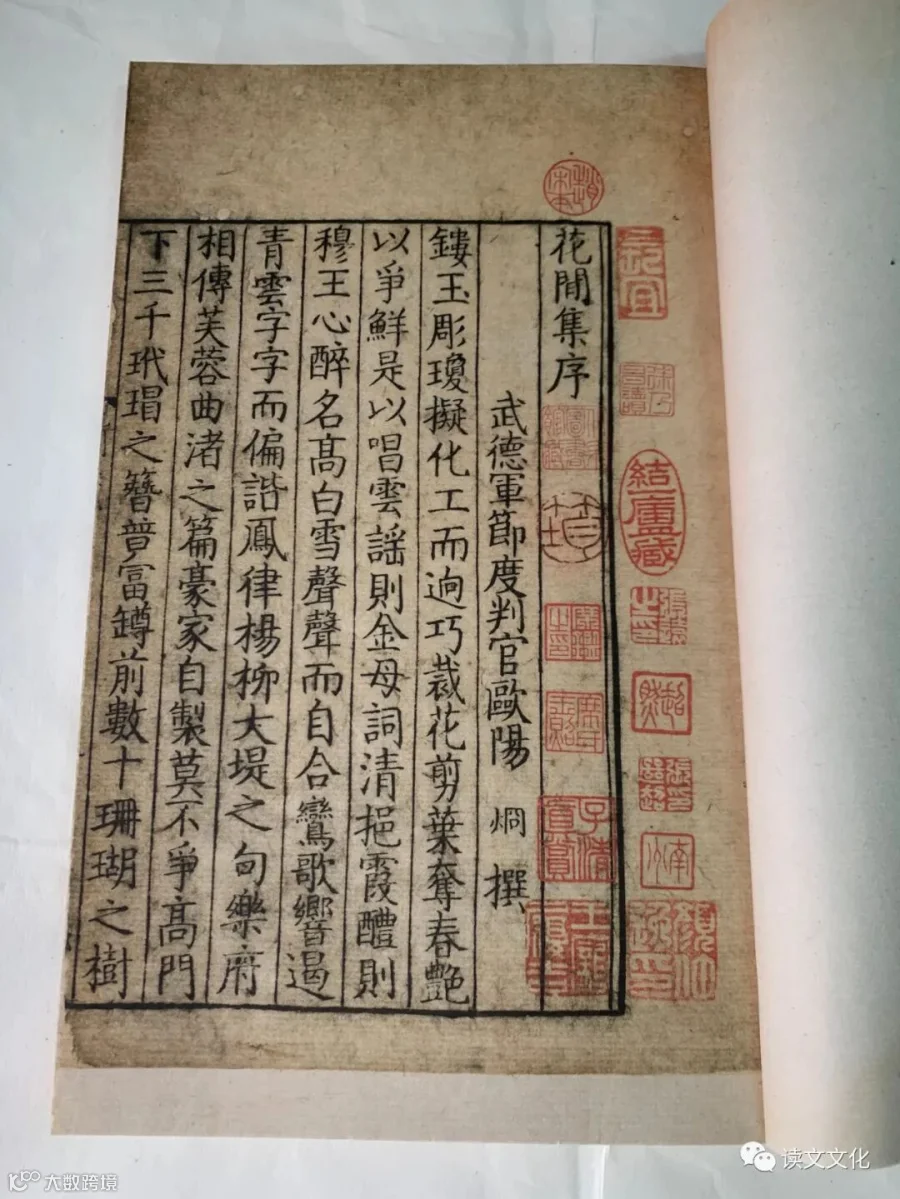 花間集序
武德軍節度判官歐陽 烱 撰
鏤玉彫瓊擬化工而逈巧裁花剪葉奪春艷
以爭鮮是以唱雲謠則金母詞清挹霞醴則
穆王心醉名高白雪聲聲而自合鸞歌響遏
青雲字字而偏諧鳳律楊柳大堤之句樂府
相傳芙蓉曲渚之篇豪家自製莫不爭高門
下三千玳瑁之簪競富罇前數十珊瑚之樹
結廬藏
读文文化
大数跨境